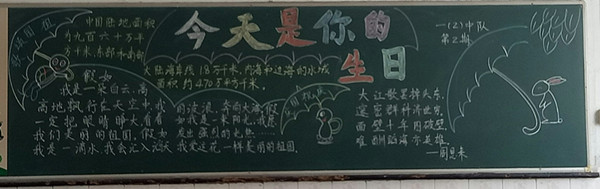 今天是你的
生日
一(2)中队
第2期
中国陆地面积
约九百六十万平
方千米,东部和南部
大陆海岸线18万千米,内海和边海的水域
面积约470万平方千米。
假如
我是一朵白云,高
高地飘行在天空中,我
一定把眼睛睁大看看
我们美丽的祖国,假如
我是一滴水,我会汇入
的波浪,奔向大海,假
如我是一米阳光,我愿
发出强烈的光热
我爱这花一样美丽的祖国
大江歌罢掉头东,
邃密群科济世穷。
面壁十年图破壁,
难酬蹈海亦英雄。
——周恩来